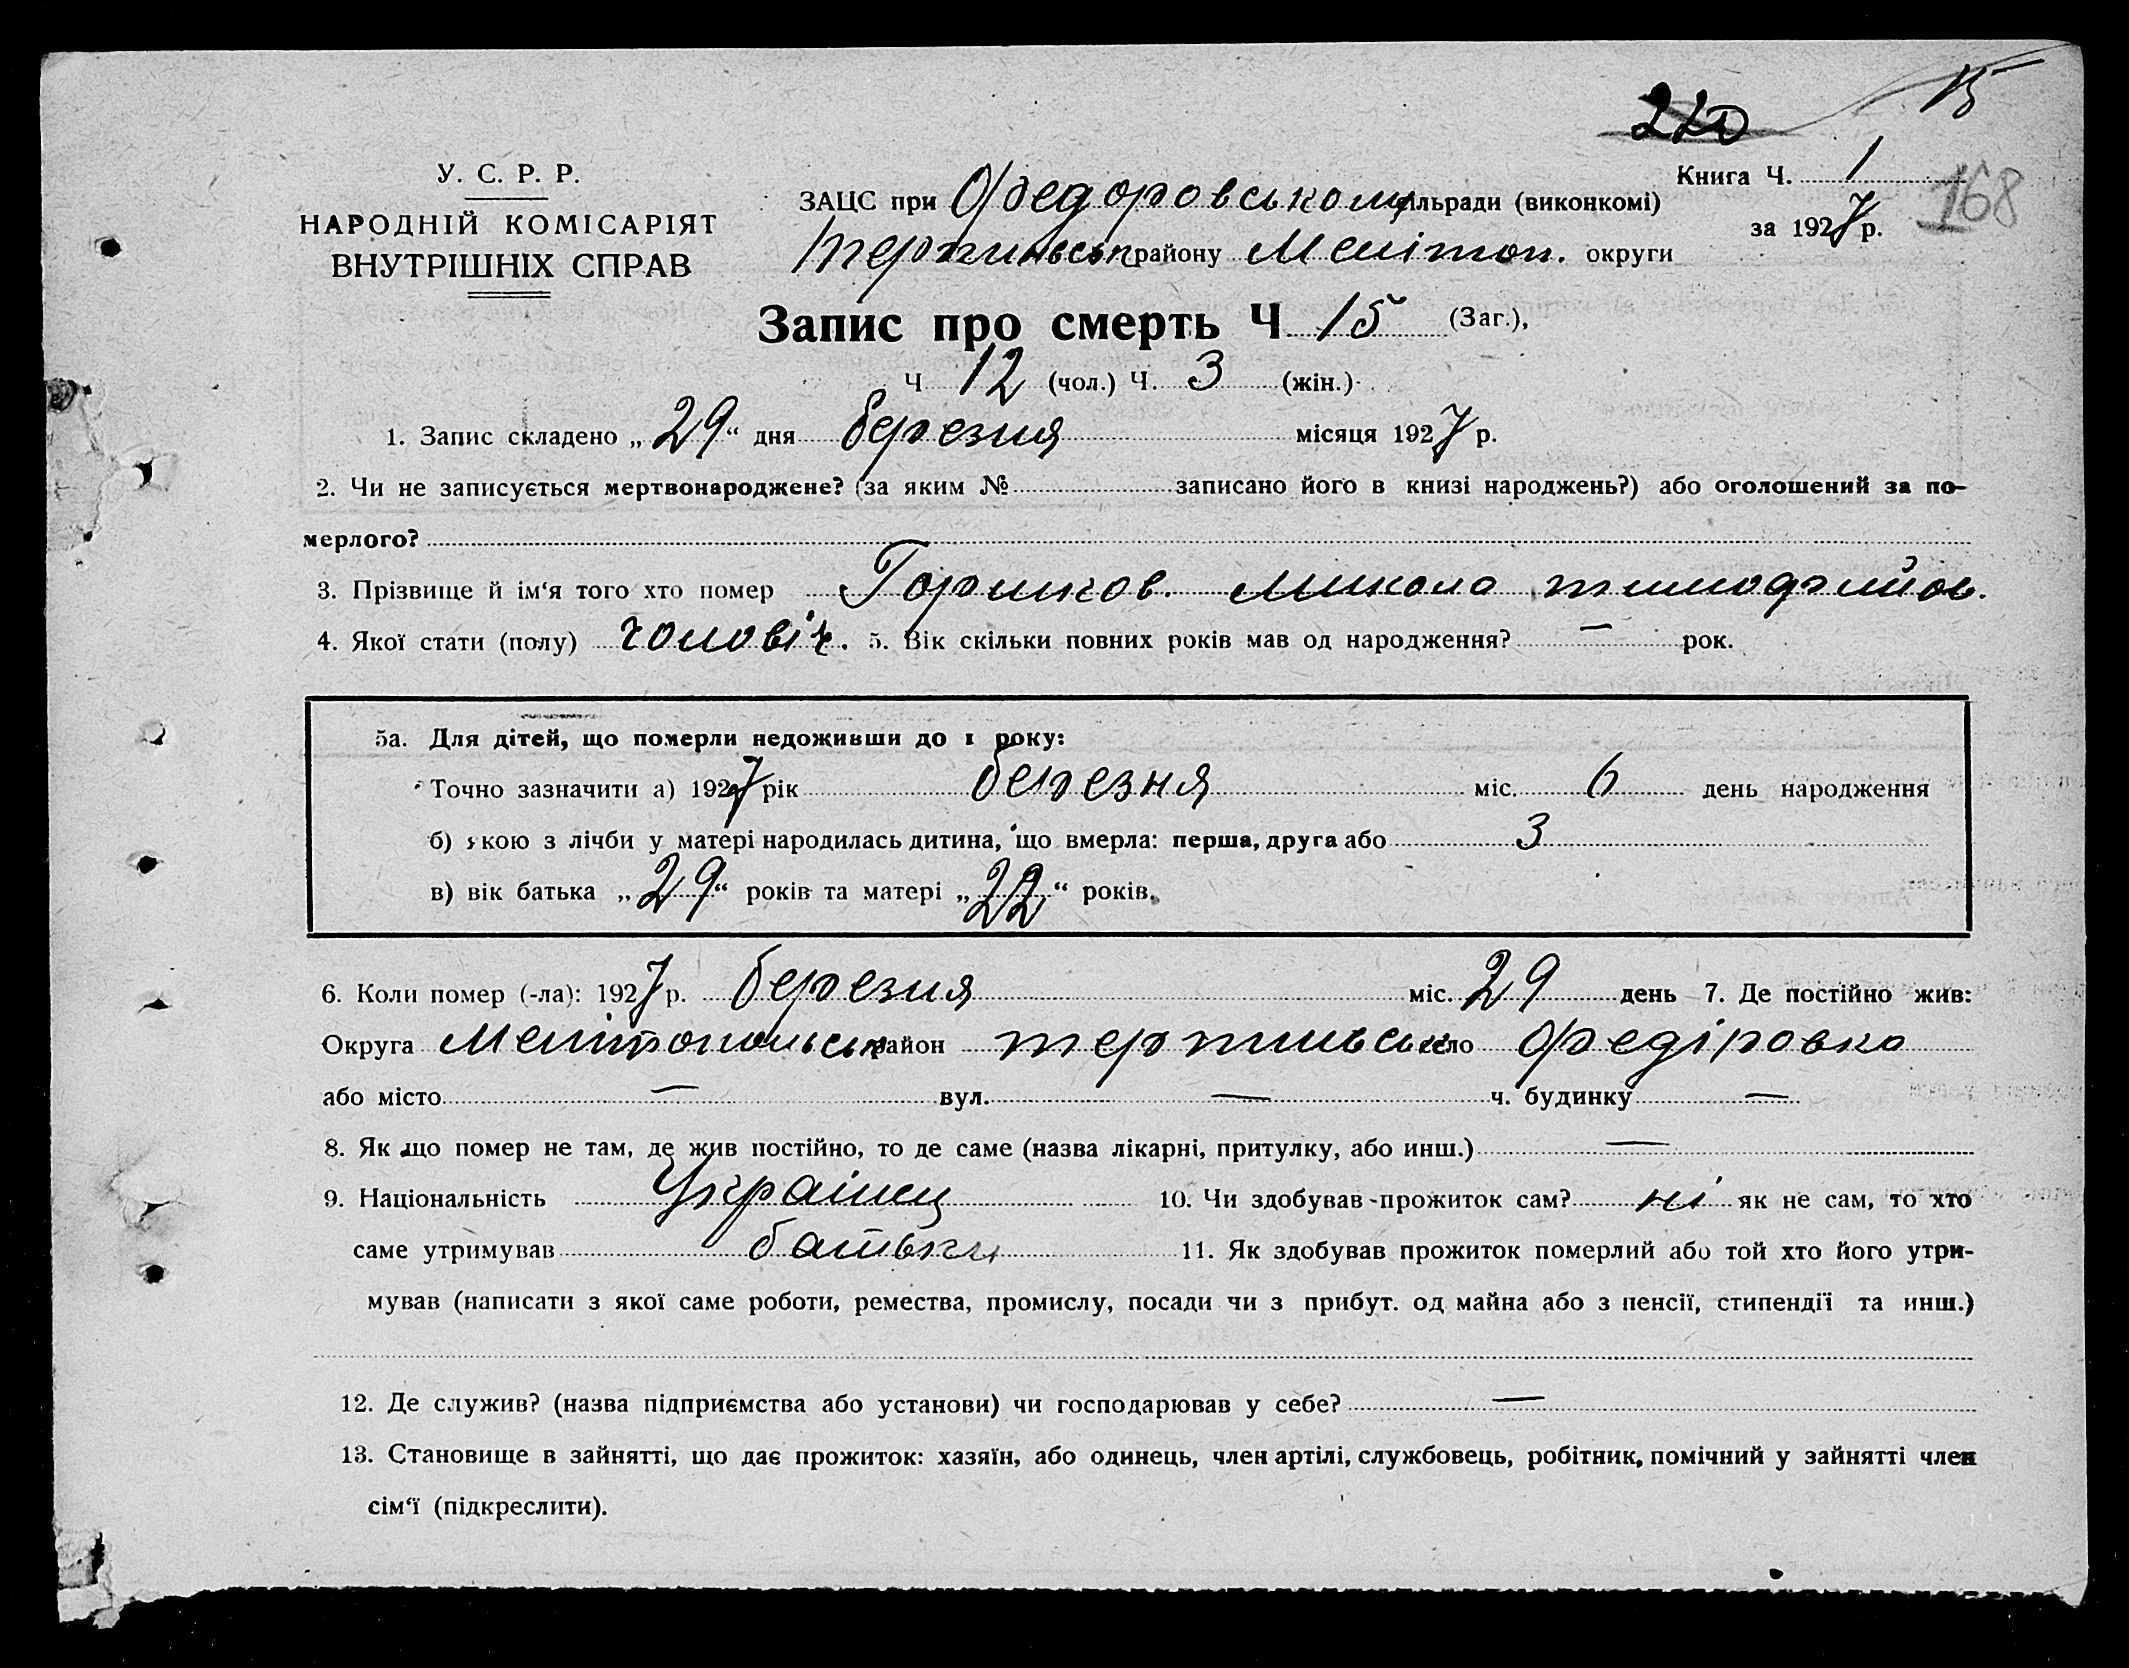 220 15
У. С. Р. Р.
НАРОДНІЙ КОМІСАРІЯТ
ВНУТРІШНІХ СПРАВ
Книга Ч. 1
за 1927 р.
168
ЗАЦС при Федоровському сільради (виконкомі)
району Меліто
п. округи
Запис про смерть Ч 15 (Заг.),
Ч 12 (чол.) Ч. 3 (жін.)
1. Запис складено „29“ дня березня місяця 1927 р.
2. Чи не записується мертвонароджене? (за яким № записано його в книзі народжень?) або оголошений за по-
мерлого?
3. Прізвище й ім‘я того хто помер Горшков Микола тимофлийов.
4. Якої стати (полу) чоловіч. 5. Вік скільки повних років мав од народження? — рок.
5а. Для дітей, що померли недоживши до 1 року:
Точно зазначити а) 1927 рік березня міс. 6 день народження
б) якою з лічби у матері народилась дитина, що вмерла: перша, друга або 3
в) вік батька „29“ років та матері „22“ років.
6. Коли помер (-ла): 1927 р. березня міс. 29 день 7. Де постійно жив:
Округа Мелітопольськ район село Федіровка
або місто — вул. — ч. будинку —
8. Як що помер не там, де жив постійно, то де саме (назва лікарні, притулку, або инш.) —
9. Національність Українец 10. Чи здобував прожиток сам? ні як не сам, то хто
саме утримував батьки 11. Як здобував прожиток померлий або той хто його утри-
мував (написати з якої саме роботи, ремества, промислу, посади чи з прибут. од майна або з пенсії, стипендії та инш.)
12. Де служив? (назва підприємства або установи) чи господарював у себе? —
13. Становище в зайнятті, що дає прожиток: хазяїн, або одинець, член артілі, службовець, робітник, помічний у зайнятті член
сім‘ї (підкреслити).